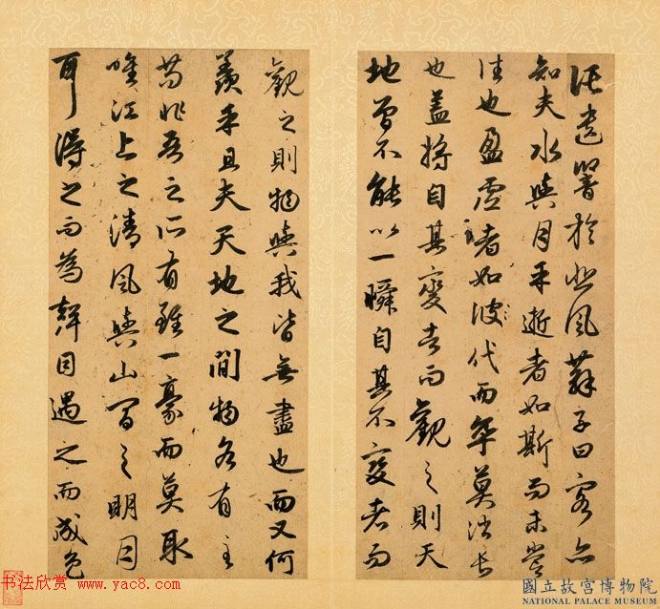 託遺響於悲風蘇子曰客亦
知夫水與月乎逝者如斯而未嘗
往也盈虛者如彼代而卒莫消長
也蓋將自其變者而觀之則天
地曾不能以一瞬自其不變者而
觀之則物與我皆無盡也而又何
羨乎且夫天地之間物各有主
苟非吾之所有雖一豪而莫取
唯江上之清風與山間之明月
耳得之而為聲目遇之而成色
书法欣赏 www.yac8.com
國立故宮博物院
NATIONAL PALACE MUSEUM